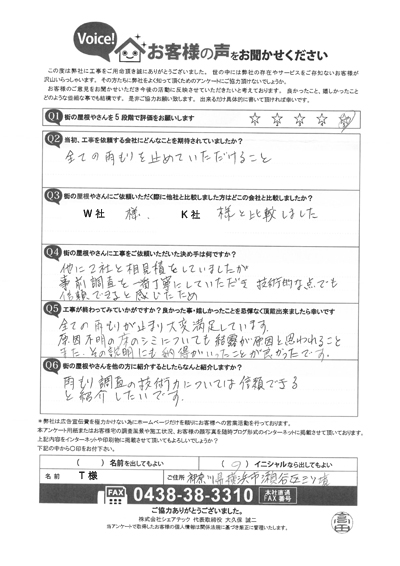 Voice!
お客様の声をお聞かせください
この度は弊社に工事をご用命頂き誠にありがとうございました。世の中には弊社の存在やサービスをご存知ないお客様が
沢山いらっしゃいます。その方たちに弊社をよく知って頂くためのアンケートにご協力頂けないでしょうか。
お客様のご意見をお聞かせいただき今後の活動に反映させていただきたいと考えております。良かったこと、嬉しかったこと
どのような些細な事でも結構です。是非ご協力お願い致します。出来るだけ具体的に書いて頂ければ幸いです。
Q1 街の屋根やさんを5段階で評価をお願います ☆ ☆ ☆ ☆ ☆
Q2 当初、工事を依頼する会社にどんなことを期待されていましたか?
全ての雨もりを止めていただけること
Q3 街の屋根やさんにご依頼いただく際に他社と比較しました方はどこの会社と比較しましたか?
W社 様、 K社 様と比較しました
Q4 街の屋根やさんに工事をご依頼いただいた決め手は何ですか?
他に2社と相見積をしていましたが
事前調査を一番丁寧にしていただき 技術的な点でも
信頼できると感じたため
Q5 工事が終わってみていかがですか?良かった事・嬉しかったことを忌憚なく頂戴出来ましたら幸いです
全ての雨もりが止まり大変満足しています。
原因不明の床のシミについても結露が原因と思われること
また、その説明にも納得がいったことが良かったです。
Q6 街の屋根やさんを他の方に紹介するとしたらなんと紹介しますか?
雨もり調査の技術力については信頼できる
と紹介したいです。
*弊社は広告宣伝費を極力かけない為にホームページだけを頼りにお客様への営業活動を行っております。
本アンケート用紙またはお客様宅の調査風景や施工状況、お客様の顔写真を随時ブログ形式のインターネットに掲載させて頂いております。
上記内容をインターネットや印刷物に掲載させて頂いてもよろしいでしょうか?
下記の中から○印をお付下さい。
( ) 名前を出してもよい (○) イニシャルなら出してもよい
名前 T様 ご住所 神奈川県横浜市瀬谷区三ツ境
FAX 0438-38-3310 本社直通 FAX番号
ご協力ありがとうございました。
株式会社シェアテック 代表取締役 大久保 誠二
当アンケートで取得したお客様の個人情報は関係法規に基づき厳正に管理いたします。